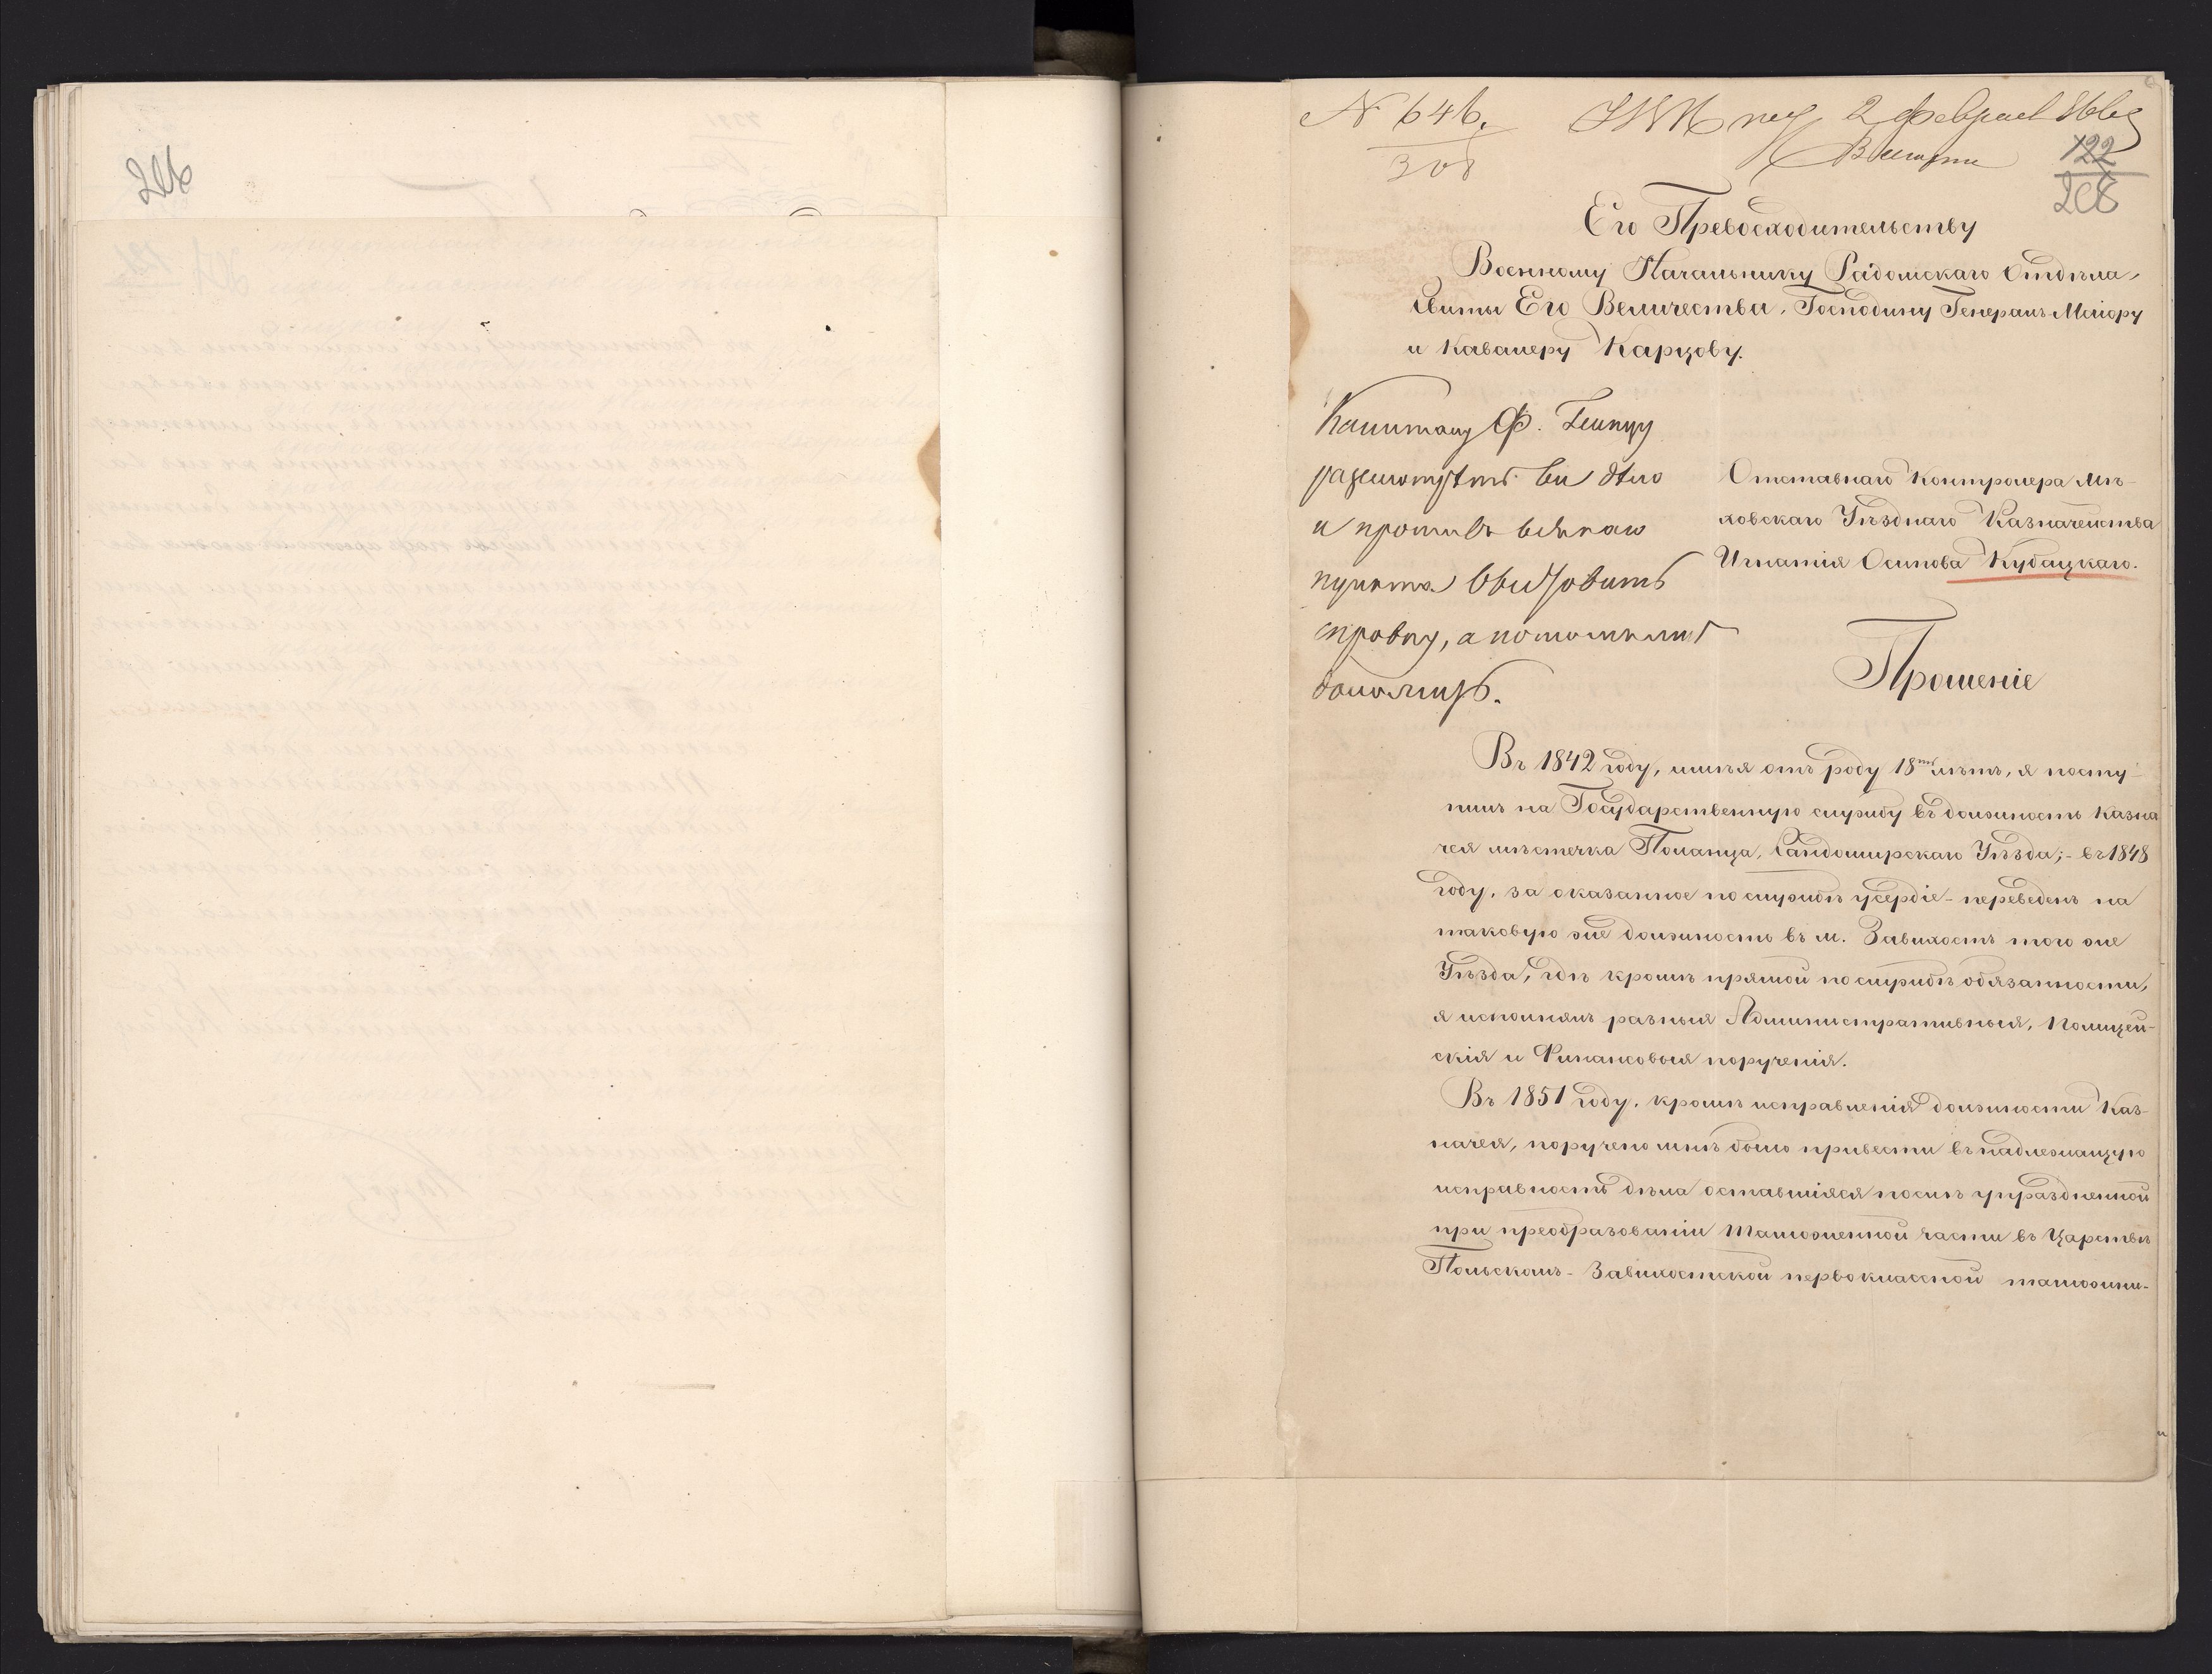 206
№ 646.
308
2 февраля
122
208
Его Превосходительству
Военному Начальнику Радомскаго Отдѣла,
Свиты Его Величества, Господину Генералъ-Маіору
и Кавалеру Карцову.
Капитану Ф.
разсмотрѣть все дѣло
и противъ всякаго
пункта
справку, а потомъ мнѣ
доложить.
Отставнаго Контролера Мѣ-
ховскаго Уѣзднаго Казначейства
Игнатія Осипова Кубацкаго.
Прошеніе
Въ 1842 году, имѣя отъ роду 18ть лѣтъ, я посту-
пилъ на Государственную службу въ должность Казна
чея мѣстечка Поланца, Сандомирскаго Уѣзда; - въ 1848
году, за оказанное по службѣ усердіе - переведенъ на
таковую же должность въ м. Завихостъ того же
Уѣзда, гдѣ кромѣ прямой по службѣ обязанности,
я исполнялъ разныя Административныя, Полицей-
скія и Финансовыя порученія.
Въ 1851 году, кромѣ исправленія должности Каз-
начея, поручено мнѣ было привести въ надлежащую
исправность дѣла оставшіяся послѣ упраздненной
при преобразованіи Таможенной части въ Царствѣ
Польскомъ - Завихостской первоклассной таможни-